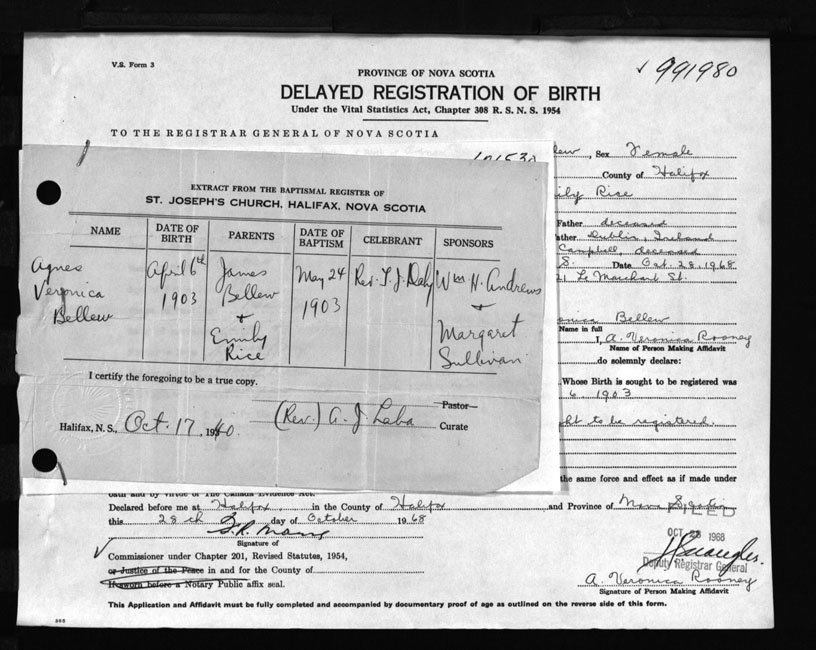 V.S. Form 3
991980
PROVINCE OF NOVA SCOTIA
DELAYED REGISTRATION OF BIRTH
Under the Vital Statistics Act, Chapter 308 R. S. N. S. 1954
TO THE REGISTRAR GENERAL OF NOVA SCOTIA
lew, Sex Female
County of Halifax
ily Rice
Father deceased
ather Dublin, Ireland
Campbell, deceased
S. Date Oct. 28, 1968
21 Le Marchant St.
EXTRACT FROM THE BAPTISMAL REGISTER OF
ST. JOSEPH'S CHURCH, HALIFAX, NOVA SCOTIA
NAME DATE OF BIRTH PARENTS DATE OF BAPTISM CELEBRANT SPONSORS
Agnes Veronica Bellew April 6th 1903 James Bellew + Emily Rice May 24 1903 Rev. Wm H. Andrews + Margaret Sullivan
I certify the foregoing to be a true copy.
Halifax, N. S., Oct. 17, 1940. (Rev.) A. J. Laba Pastor
Curate
onica Bellew
Name in full
I, A. Veronica Rooney
Name of Person Making Affidavit
do solemnly declare:
Whose Birth is sought to be registered was
6, 1903
ght to be registered.
the same force and effect as if made under
oath and by virtue of The Canada Evidence Act.
Declared before me at Halifax in the County of Halifax and Province of Nova Scotia
this 28th day of October 1968
Signature of
OCT 28 1968
Commissioner under Chapter 201, Revised Statutes, 1954,
or Justice of the Peace in and for the County of
Deputy Registrar General
If sworn before a Notary Public affix seal.
A. Veronica Rooney
Signature of Person Making Affidavit
This Application and Affidavit must be fully completed and accompanied by documentary proof of age as outlined on the reverse side of this form.